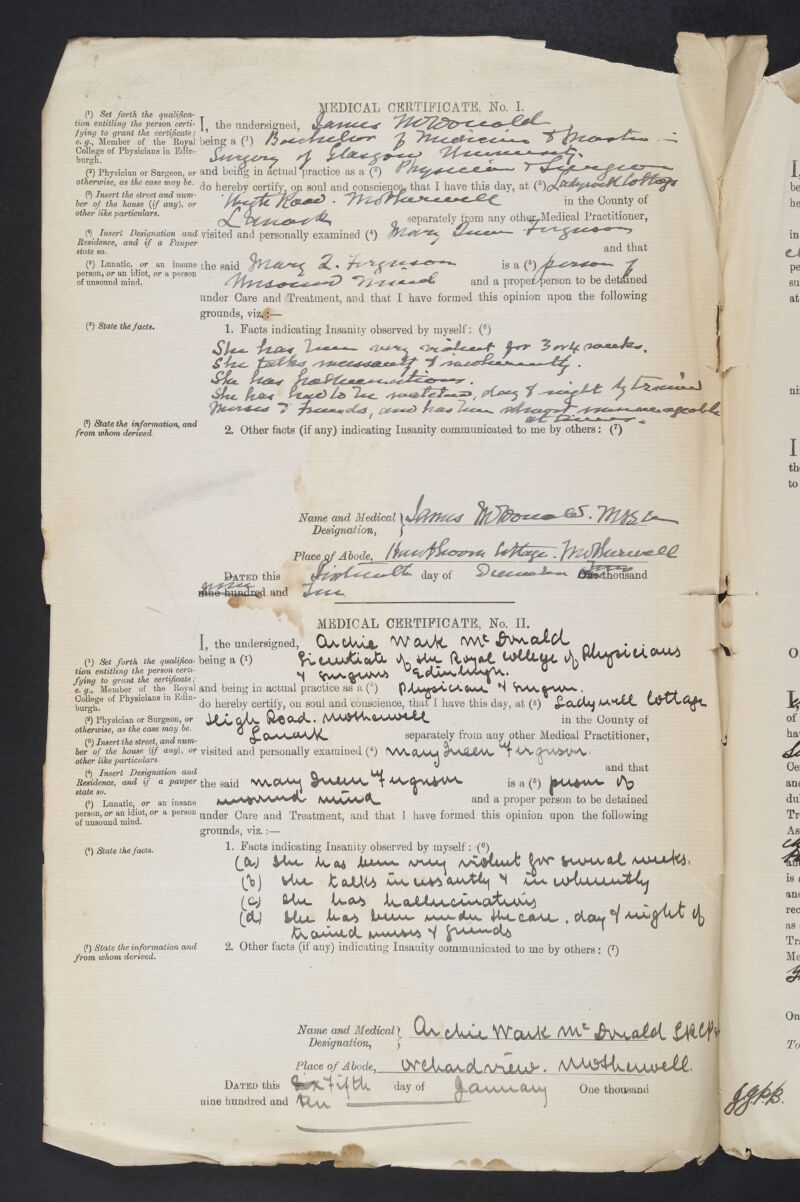 MEDICAL CERTIFICATE, No. I.
(¹) Set forth the qualifica-
tion entitling the person certi-
fying to grant the certificate;
e.g., Member of the Royal
College of Physicians in Edin-
burgh.
(²) Physician or Surgeon, or
otherwise, as the case may be.
(³) Insert the street and num-
ber of the house (if any), or
other like particulars.
(⁴) Insert Designation and
Residence, and if a Pauper
state so.
(⁵) Lunatic, or an insane
person, or an idiot, or a person
of unsound mind.
(⁶) State the facts.
(⁷) State the information, and
from whom derived.
I, the undersigned, James McDonald
being a (¹) Bachelor of Medicine & Master in
Surgery of Glasgow University.
and being in actual practice as a (²) Physician & Surgeon
do hereby certify, on soul and conscience, that I have this day, at (³) Ladywell Cottage
High Road. Motherwell in the County of
Lanark separately from any other Medical Practitioner,
visited and personally examined (⁴) Mary Queen Ferguson
and that
the said Mary Q. Ferguson is a (⁵) person of
unsound mind and a proper person to be detained
under Care and Treatment, and that I have formed this opinion upon the following
grounds, viz.:—
1. Facts indicating Insanity observed by myself: (⁶)
She has been very violent for 3 or 4 weeks.
She talks incessantly & incoherently.
She has hallucinations.
She has had to be watched, day & night by trained
nurses & friends, and has been almost unmanageable
at times.
2. Other facts (if any) indicating Insanity communicated to me by others: (⁷)
Name and Medical Designation, James McDonald. M.B.
Place of Abode, Hawthorn Cottage. Motherwell
DATED this day of One thousand
nine hundred and
MEDICAL CERTIFICATE, No. II.
(¹) Set forth the qualifica-
tion entitling the person certi-
fying to grant the certificate;
e.g., Member of the Royal
College of Physicians in Edin-
burgh.
(²) Physician or Surgeon, or
otherwise, as the case may be.
(³) Insert the street, and num-
ber of the house (if any), or
other like particulars.
(⁴) Insert Designation and
Residence, and if a pauper
state so.
(⁵) Lunatic, or an insane
person, or an idiot, or a person
of unsound mind.
(⁶) State the facts.
(⁷) State the information and
from whom derived.
I, the undersigned, Archie Wark McDonald
being a (¹) Licentiate of the Royal College of Physicians
& Surgeons Edinburgh.
and being in actual practice as a (²) Physician & Surgeon.
do hereby certify, on soul and conscience, that I have this day, at (³) Ladywell Cottage
High Road. Motherwell in the County of
Lanark separately from any other Medical Practitioner,
visited and personally examined (⁴) Mary Queen Ferguson.
and that
the said Mary Queen Ferguson is a (⁵) person of
unsound mind and a proper person to be detained
under Care and Treatment, and that I have formed this opinion upon the following
grounds, viz.:—
1. Facts indicating Insanity observed by myself: (⁶)
(a) She has been very violent for several weeks.
(b) She talks incessantly & incoherently
(c) She has hallucinations
(d) She has been under the care, day & night of
trained nurses & friends
2. Other facts (if any) indicating Insanity communicated to me by others: (⁷)
Name and Medical Designation, Archie Wark McDonald
Place of Abode, Orchard view. Motherwell.
DATED this Fifth day of January One thousand
nine hundred and ten